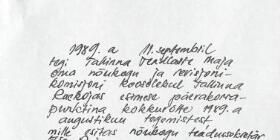 1989. a 11. septembril
tegi Tallinna Teadlaste Maja
oma nõukogu ja revisjoni-
komisjoni koosolekul Tallinna
Raekojas esimese päevakorra-
punktina kokkuvõtte 1989. a
augustikuu tegemistest
mille esitas nõukogu teadussekretär